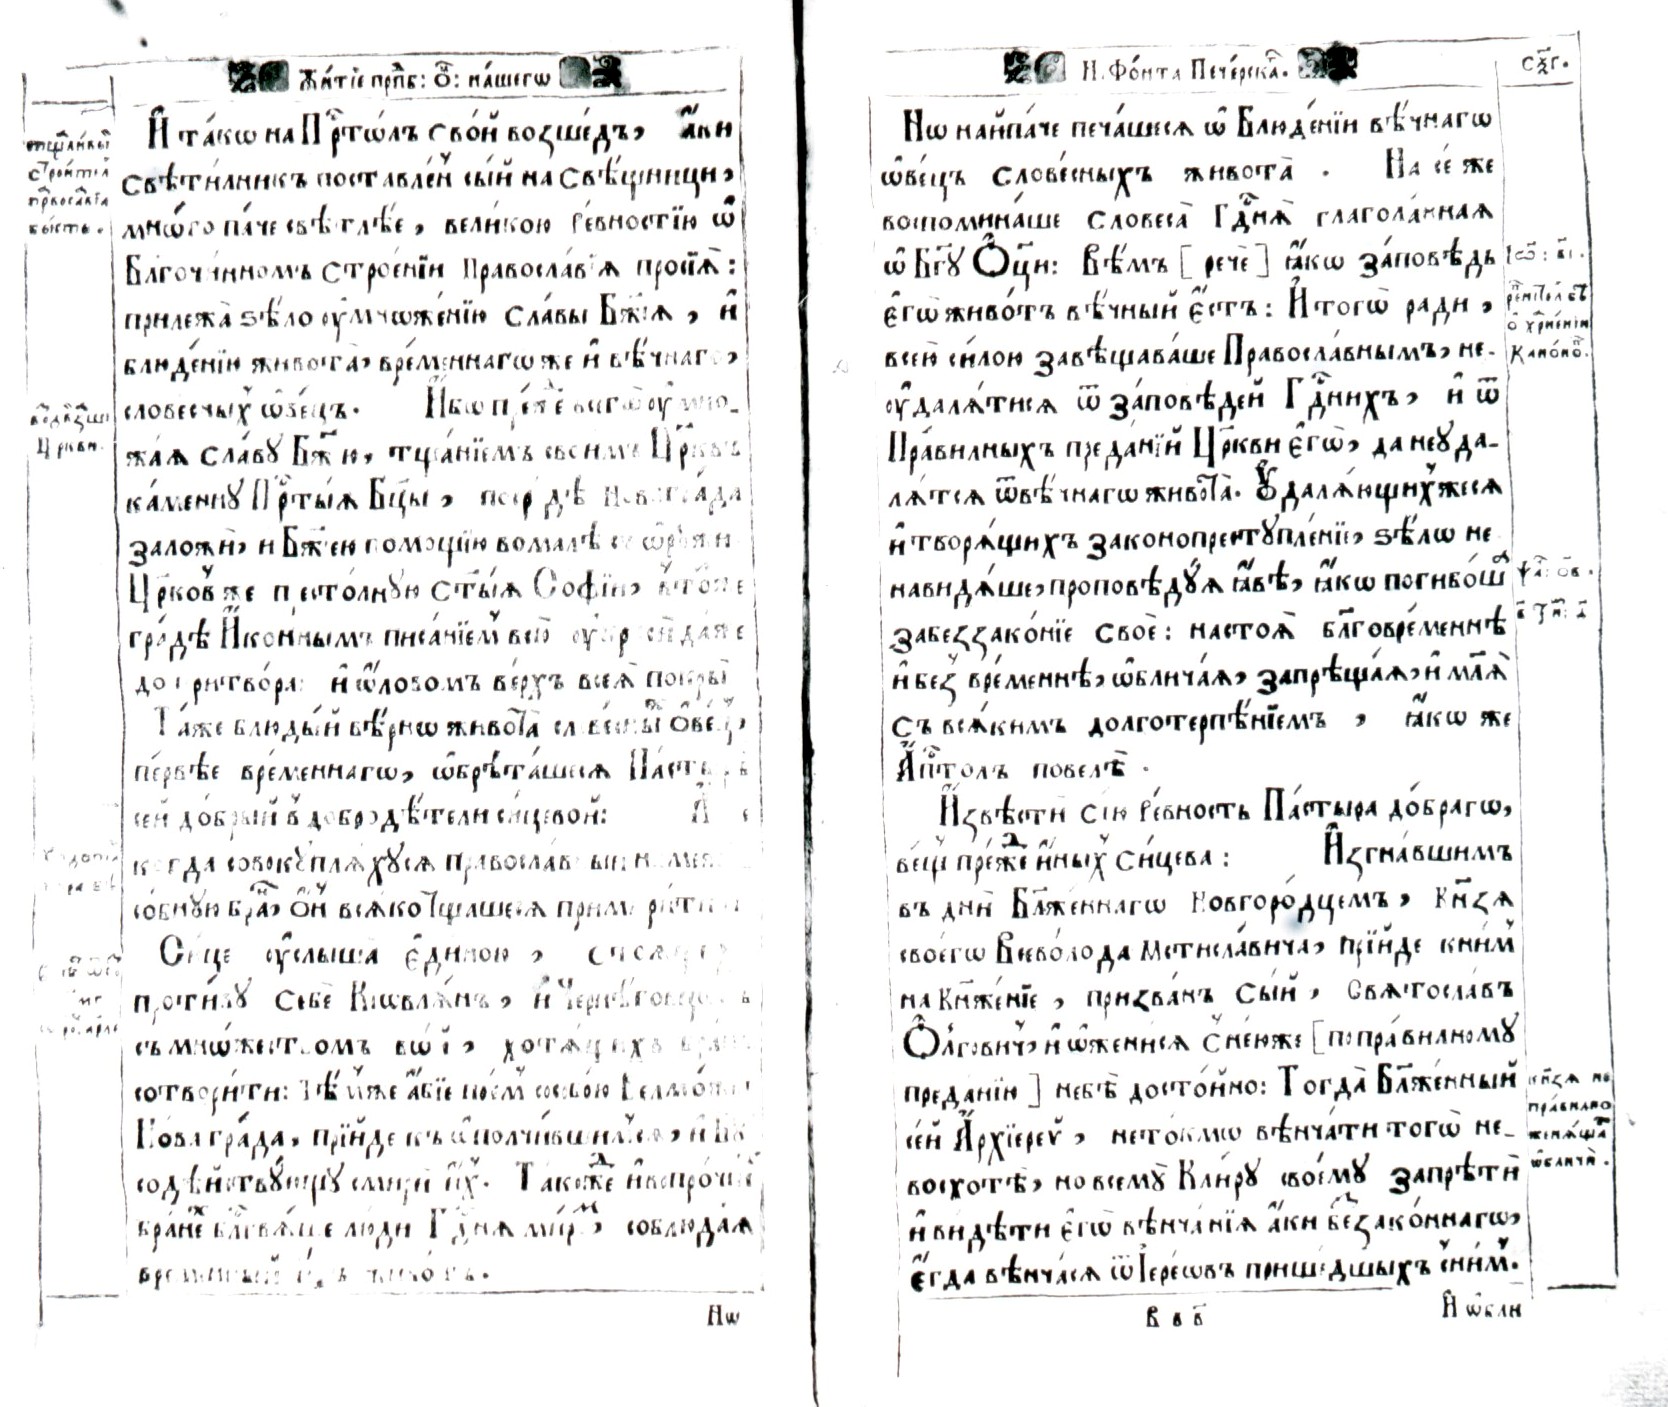 Житїе прпб: О: нашегѡ
И такѡ на Прⷭтолъ свой возшедъ, аки
свѣтилникъ поставлен сый на свѣщници,
мнѡго паче свѣтлѣе, великою ревностїю ѡ
Бл҃гочинномъ строенїи Православїя просїѧ:
прилежа ѕѣло оумножѣнїю славы Бж҃їѧ, и
блюденїю живота, временнагѡ же и вѣчнаго,
словесных ѡвецъ. Ибо преже всегѡ оумно-
жаѧ славу Бж҃ію, тщанїемъ своимъ Црк҃вь
каменну Прⷭтыѧ Бц҃ы, посредѣ Новаграда
заложи, и Бж҃ею помощїю вомалѣ
Црковъ же престолную Ст҃ыѧ Софїи,
градѣ Иконнымъ писанїем всю
до притвора: и ѡловомъ верхъ всеѧ покры
Таже блюдый вѣрнѡ живота словесны овец,
первѣе временнагѡ, ѡбрѣташесѧ Пастырь
сей добрый в добродѣтели сицевой:
когда совокуплѧхусѧ православныи
собную бра, Он всѧко тщашесѧ примирити
Сице услыша единою,
противу себе Кіовлѧнъ, и Чернѣговцовъ
съ мнѡжеством вой, хотѧщихъ брань
сотворити: абїе поем собою Велможи
Новаграда, прїйде къ ѡполчившимсѧ, и Бг҃у
содѣйствующу смири их. Такоже и впрочїи
бране бл҃гвѧще люди Гдⷭнѧ мир, соблюдаѧ
временный
Нѡ
ѡтщанивый
строител
првославїа
бысть.
Црквн.
Н.Фонта Печерска.
СѮГ.
Нѡ найпаче печашесѧ ѡ Блюденїи вѣчнагѡ
ѡвецъ словесныхъ живота. На се же
воспоминаше словеса Гдⷭнѧ глаголаннаѧ
ѡ Бг҃у Оц҃и: Вѣмъ [рече] ꙗкѡ заповѣдь
егѡ животъ вѣчный естъ: И тогѡ ради,
всею силою завѣщаваше Православнымъ, не-
оудалѧтисѧ ѿ заповѣдей Гдⷭнихъ, и ѿ
Правилныхъ преданїй Црк҃ви егѡ, да неуда-
лѧтсѧ ѿвѣчнагѡ живота. Удалѧющихжесѧ
и творѧщихъ законопреступленїе, ѕѣлѡ не
навидѧше, проповѣдуѧ ꙗвѣ, ꙗкѡ погибош
забеззаконїе свое: настоѧ бл҃говременнѣ
и без временнѣ, ѡбличаѧ, запрѣщаѧ, и млѧ
съ всѧкимъ долготерпѣнїемъ, ꙗкѡ же
Апⷭтолъ повелѣ.
Извѣсти сїю ревность Пастыра добрагѡ,
вещ преже иных сицева: Изгнавшимъ
въ дни Бл҃женнагѡ Новгородцемъ, Кн҃зѧ
своегѡ Всеволода Мстиславича, прїйде кним
на Кн҃женїе, призванъ сый, Свѧтославъ
Олговичъ, и ѡженисѧ снеюже [поправилному
преданїю] небѣ достойно: Тогда Бл҃женный
сей Архїерей, нетокмѡ вѣнчати тогѡ не-
восхотѣ, но всему Клиру своему запрѣти
и видѣти егѡ вѣнчанїѧ аки беззаконнагѡ,
егда вѣнчасѧ ѿ Іереѡвъ пришедшыхъ сним.
В в в
И ѡбли
Іѡ: в҃і.
ѡ хрненїи
Канонѡ.
Ѱа: ов.
в Тим: д
Кн҃зѧ не
правилно
женѧща
ѡбличи.